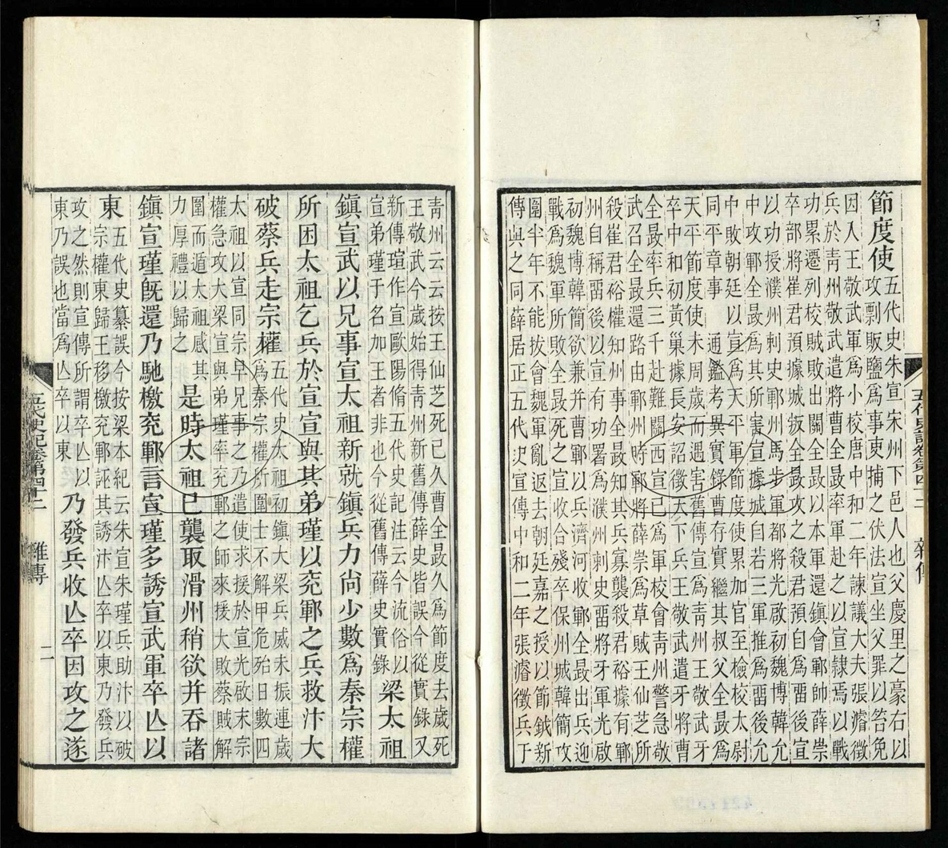 節度使
五代史朱宣宋州下邑人也父慶里之豪右以
攻剽販鹽爲事吏捕之伏法宣坐父罪以笞免
因入王敬武軍爲小校唐中和二年諫議大夫張濬徵
兵於青州敬武遣將曹全晸率軍赴之以宣隸焉以戰
功累遷列校賊敗出關全晸以本軍還鎮會鄆帥薛崇
卒部將崔君預據城叛全晸攻之殺君預自爲畱後宣
以功授濮州刺史鄆州馬步軍都將光啟初魏博韓允
中攻鄆全晸爲其所害宣據城自若三軍推爲畱後允
中敗朝廷以宣爲天平軍節度使累加官至檢校太尉
同平章事 通鑑考異實錄曹存實繼其叔父全晸爲
天平節度使未周歲而遇害舊傳宣爲青州王敬武牙
卒中和初黃巢據長安詔徵天下兵王敬武遣牙將曹
全晸率兵三千赴難關西宣已爲軍校會青州警急敬
武召全晸還路由鄆時鄆將薛崇爲草賊王仙芝所
殺崔君裕權知州事全晸知其兵寡襲殺君裕據有鄆
州自稱畱後以宣有功署爲濮州刺史畱將牙軍光啟
初魏博韓簡欲兼并曹鄆以兵濟河收鄆全晸出兵迎
戰爲魏軍所敗全晸死之宣收合殘卒保州城韓簡攻
圍半年不能拔會魏軍亂退去朝廷嘉之授以節鉞新
傳與之同薛居正五代史宣傳中和二年張濬徵兵于
五代史記卷第四十二 雜傳
青州云云按王仙芝死已久曹全晸久爲節度去歲死
王敬武今歲始得青州新舊傳薛史皆誤今從實錄又
新傳瑄作宣歐陽脩五代史記注云今流俗以
宣弟瑾于名加王者非也今從舊傳薛史實錄
梁太祖
鎮宣武以兄事宣太祖新就鎮兵力尚少數爲秦宗權
所困太祖乞兵於宣宣與其弟瑾以兖鄆之兵救汴大
破蔡兵走宗權
五代史太祖初鎮大梁兵威未振連歲
爲秦宗權所圍士不解甲危殆日數四
太祖以宣同宗早兄事之乃遣使求援於宣光啟末宗
權急攻大梁宣與弟瑾率兖鄆之師來援大敗蔡賊解
圍而遁太祖感其
力厚禮以歸之
是時太祖已襲取滑州稍欲并吞諸
鎮宣瑾既還乃馳檄兖鄆言宣瑾多誘宣武軍卒亾以
東
五代史纂誤今按梁本紀云朱宣朱瑾兵助汴以破
宗權東歸王移檄兖鄆誣其誘汴亾卒以東乃發兵
攻之然則宣傳所謂卒亾以
東乃誤也當爲亾卒以東
乃發兵收亾卒因攻之遂
五代史記卷第四十二 雜傳 二